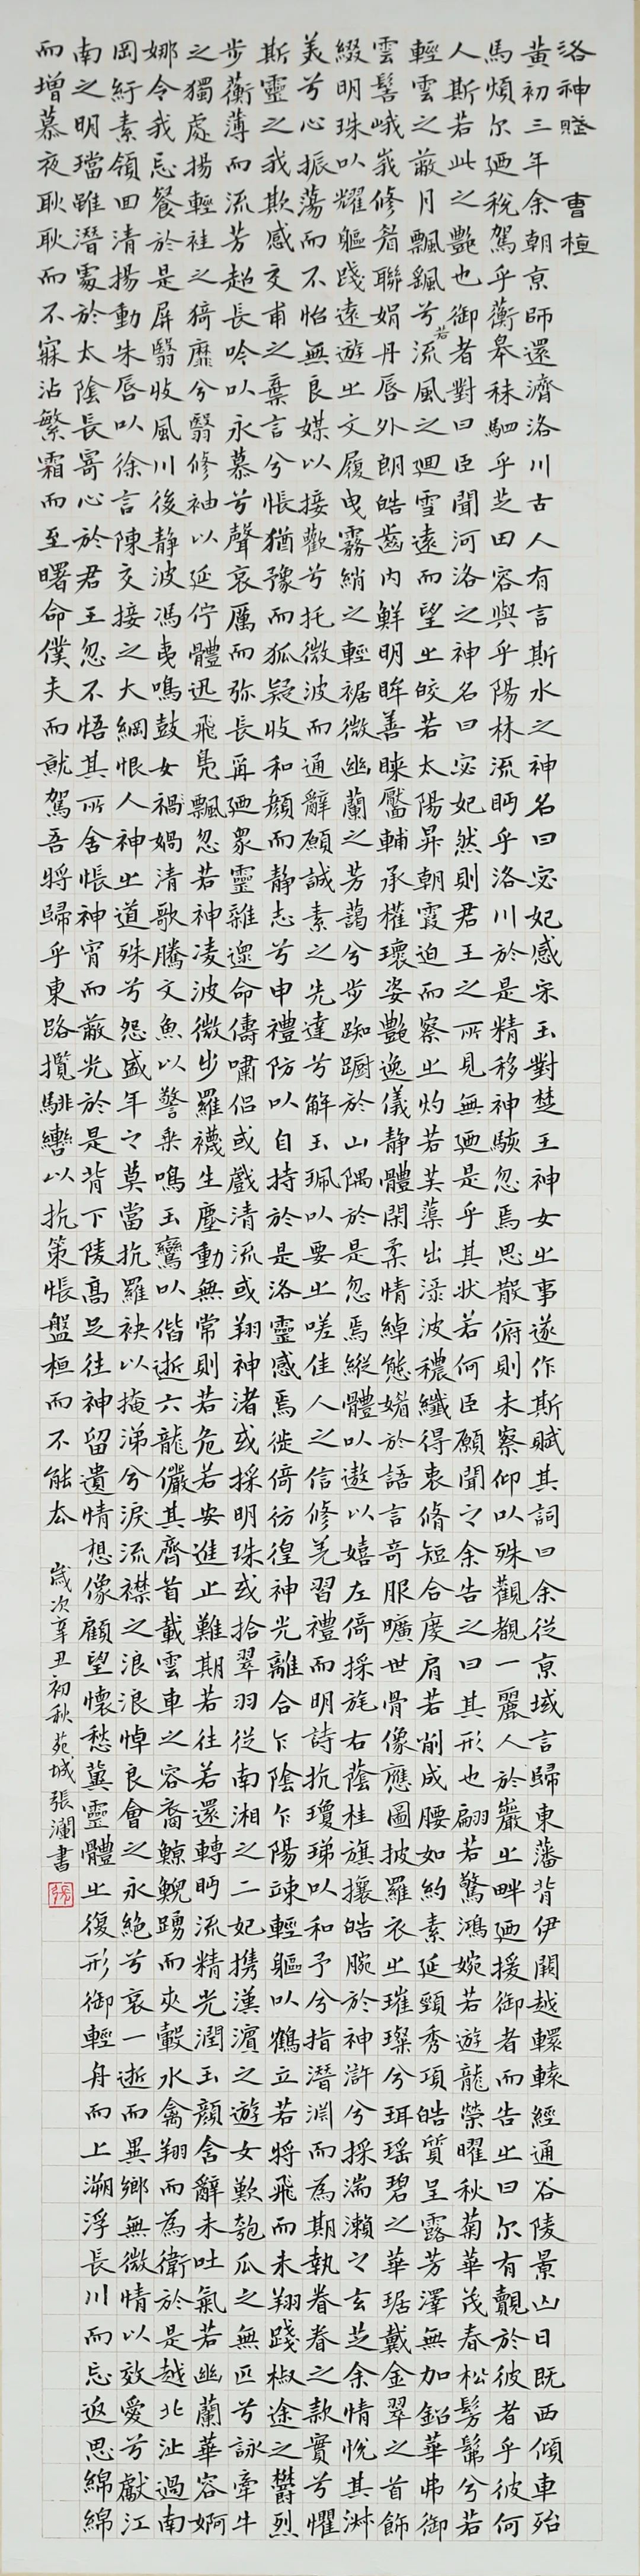 洛神賦 曹植
黃初三年余朝京師還濟洛川古人有言斯水之神名曰宓妃感宋玉對楚王神女之事遂作斯賦其詞曰余從京域言歸東藩背伊闕越轘轅經通谷陵景山日既西傾車殆
馬煩尔迺稅駕乎蘅皋秣駟乎芝田容與乎陽林流眄乎洛川於是精移神駭忽焉思散俯則未察仰以殊觀覩一麗人於巖之畔迺援御者而告之曰尔有覿於彼者乎彼何
人斯若此之艷也御者對曰臣聞河洛之神名曰宓妃然則君王之所見無迺是乎其狀若何臣願聞之余告之曰其形也翩若驚鴻婉若遊龍榮曜秋菊華茂春松髣髴兮若
輕雲之蔽月飄颻兮若流風之迴雪遠而望之皎若太陽昇朝霞迫而察之灼若芙蕖出淥波穠纖得衷脩短合度肩若削成腰如約素延頸秀項皓質呈露芳澤無加鉛華弗御
雲髻峨峩修眉聯娟丹唇外朗皓齒內鮮明眸善睞靨輔承權瓌姿艷逸儀静體閑柔情綽態媚於語言奇服曠世骨像應圖披羅衣之璀璨兮珥瑤碧之華琚戴金翠之首飾
綴明珠以耀軀踐遠遊之文履曳霧綃之輕裾微幽蘭之芳藹兮步踟躕於山隅於是忽焉縱體以遨以嬉左倚採旄右蔭桂旗攘皓腕於神滸兮採湍瀨之玄芝余情悅其淑
美兮心振蕩而不怡無良媒以接歡兮托微波而通辭願誠素之先達兮解玉珮以要之嗟佳人之信修羌習禮而明詩抗瓊珶以和予兮指潛淵而為期執眷眷之款實兮懼
斯靈之我欺感交甫之棄言兮悵猶豫而狐疑收和顏而静志兮申禮防以自持於是洛靈感焉徙倚彷徨神光離合乍陰乍陽竦輕軀以鶴立若將飛而未翔踐椒途之鬱烈
步蘅薄而流芳超長吟以永慕兮聲哀厲而弥長爾迺眾靈雜遝命儔嘯侶或戲清流或翔神渚或採明珠或拾翠羽從南湘之二妃携漢濱之遊女歎匏瓜之無匹兮詠牽牛
之獨處揚輕袿之猗靡兮翳修袖以延佇體迅飛鳧飄忽若神凌波微步羅襪生塵動無常則若危若安進止難期若往若還轉眄流精光潤玉顏含辭未吐氣若幽蘭華容婀
娜令我忘餐於是屏翳收風川後静波馮夷鳴鼓女禍媧清歌騰文魚以警乘鳴玉鸞以偕逝六龍儼其齊首載雲車之容裔鯨鯢踴而夾轂水禽翔而為衛於是越北沚過南
岡紆素領回清揚動朱唇以徐言陳交接之大綱恨人神之道殊兮怨盛年之莫當抗羅袂以掩涕兮淚流襟之浪浪悼良會之永絕兮哀一逝而異鄉無微情以效愛兮獻江
南之明璫雖潛處於太陰長寄心於君王忽不悟其所舍悵神宵而蔽光於是背下陵高足往神留遺情想像顧望懷愁冀靈體之復形御輕舟而上溯浮長川而忘返思綿綿
而增慕夜耿耿而不寐沾繁霜而至曙命僕夫而就駕吾將歸乎東路攬騑轡以抗策悵盤桓而不能去
歲次辛丑初秋苑城張瀾書
張